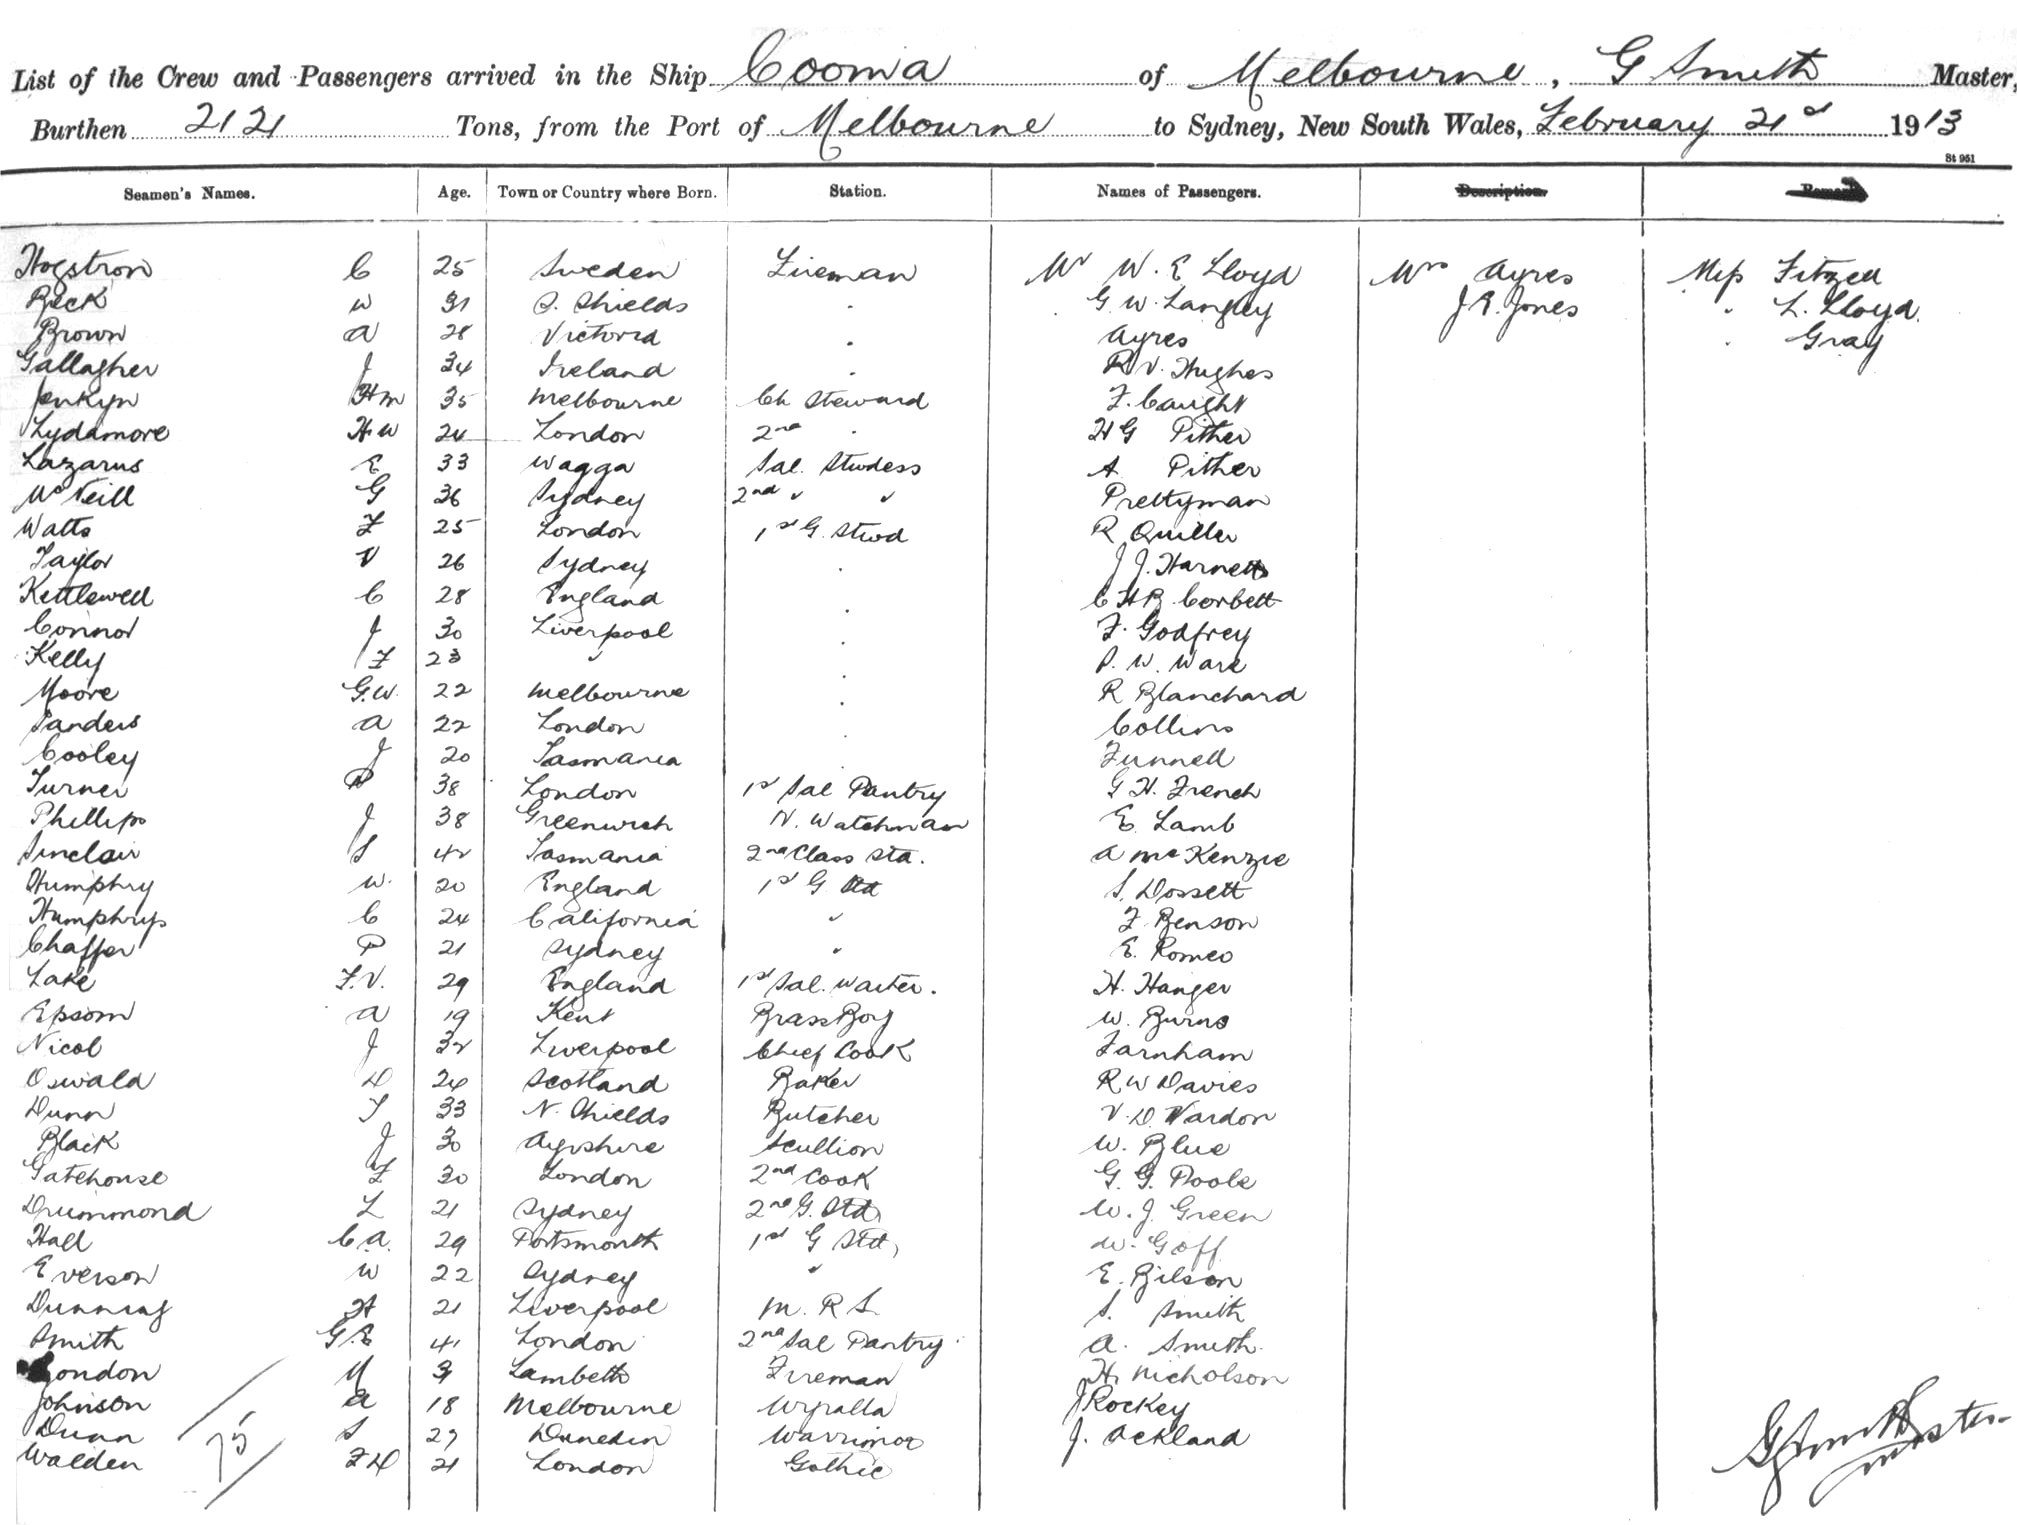 List of the Crew and Passengers arrived in the Ship Cooma of Melbourne, G Smith Master,
Burthen 2121 Tons, from the Port of Melbourne to Sydney, New South Wales, February 21st 1913
St 951
Seamen's Names. Age. Town or Country where Born. Station. Names of Passengers. Description. Remarks
Hogstron C 25 Sweden Fireman Mr W. E Lloyd Mrs Ayres Miss Fitzell
Beck W 31 S. Shields . G. W. Langley J. E. Jones " L. Lloyd.
Brown A 28 Victoria . Ayres " Gray
Gallagher J 34 Ireland . R V. Hughes
Jenkyn H m 35 Melbourne Ch Steward F. Caught
Lydamore H W 24 London 2nd " H G Pither
Lazarus E 33 Wagga Sal. Stwdess A Pither
McNeill G 36 Sydney 2nd " " Prettyman
Watts F 25 London 1st G. Stwd R Quiller
Taylor V 26 Sydney . J J. Harnett
Kettlewell C 28 England . C H B. Corbett
Connor J 30 Liverpool . F. Godfrey
Kelly F 23 " . P. W. Ware
Moore G.W. 22 Melbourne . R Blanchard
Sanders A 22 London . Collins
Cooley J 20 Tasmania . Funnell
Turner P 38 London 1st Sal Pantry G H. French
Phillips J 38 Greenwich N. Watchman E. Lamb
Sinclair S 42 Tasmania 2nd Class Std. A McKenzie
Humphry W. 20 England 1st G Std S. Dossett
Humphrys C 24 California " F. Benson
Chaffer P 21 Sydney " E. Romeo
Lake F.V. 29 England 1st Sal. Waiter. H. Hanger
Epsom A 19 Kent Brass Boy W. Burns
Nicol J 32 Liverpool Chief Cook Farnham
Oswald D 24 Scotland Baker R W Davies
Dunn T 33 N. Shields Butcher V. D. Vardon
Black J 30 Ayrshire Scullion W. Blue
Gatehouse F 30 London 2nd Cook G. G. Poole
Drummond L 21 Sydney 2nd G. Std. W. J. Green
Hall C.A. 29 Portsmouth 1st G Std, W. Goff
Everson W 22 Sydney " E. Bilson
Dunning H 21 Liverpool M. R S. S. Smith
Smith G.E 41 London 2nd Sal Pantry A. Smith.
London M Lambeth Fireman H. Nicholson
Johnson A 18 Melbourne Wyralla J Rockey
Dunn S 27 Dunedin Warrimoo J. Ackland
Walden F D 21 London Gothic
75
G Smith
Master